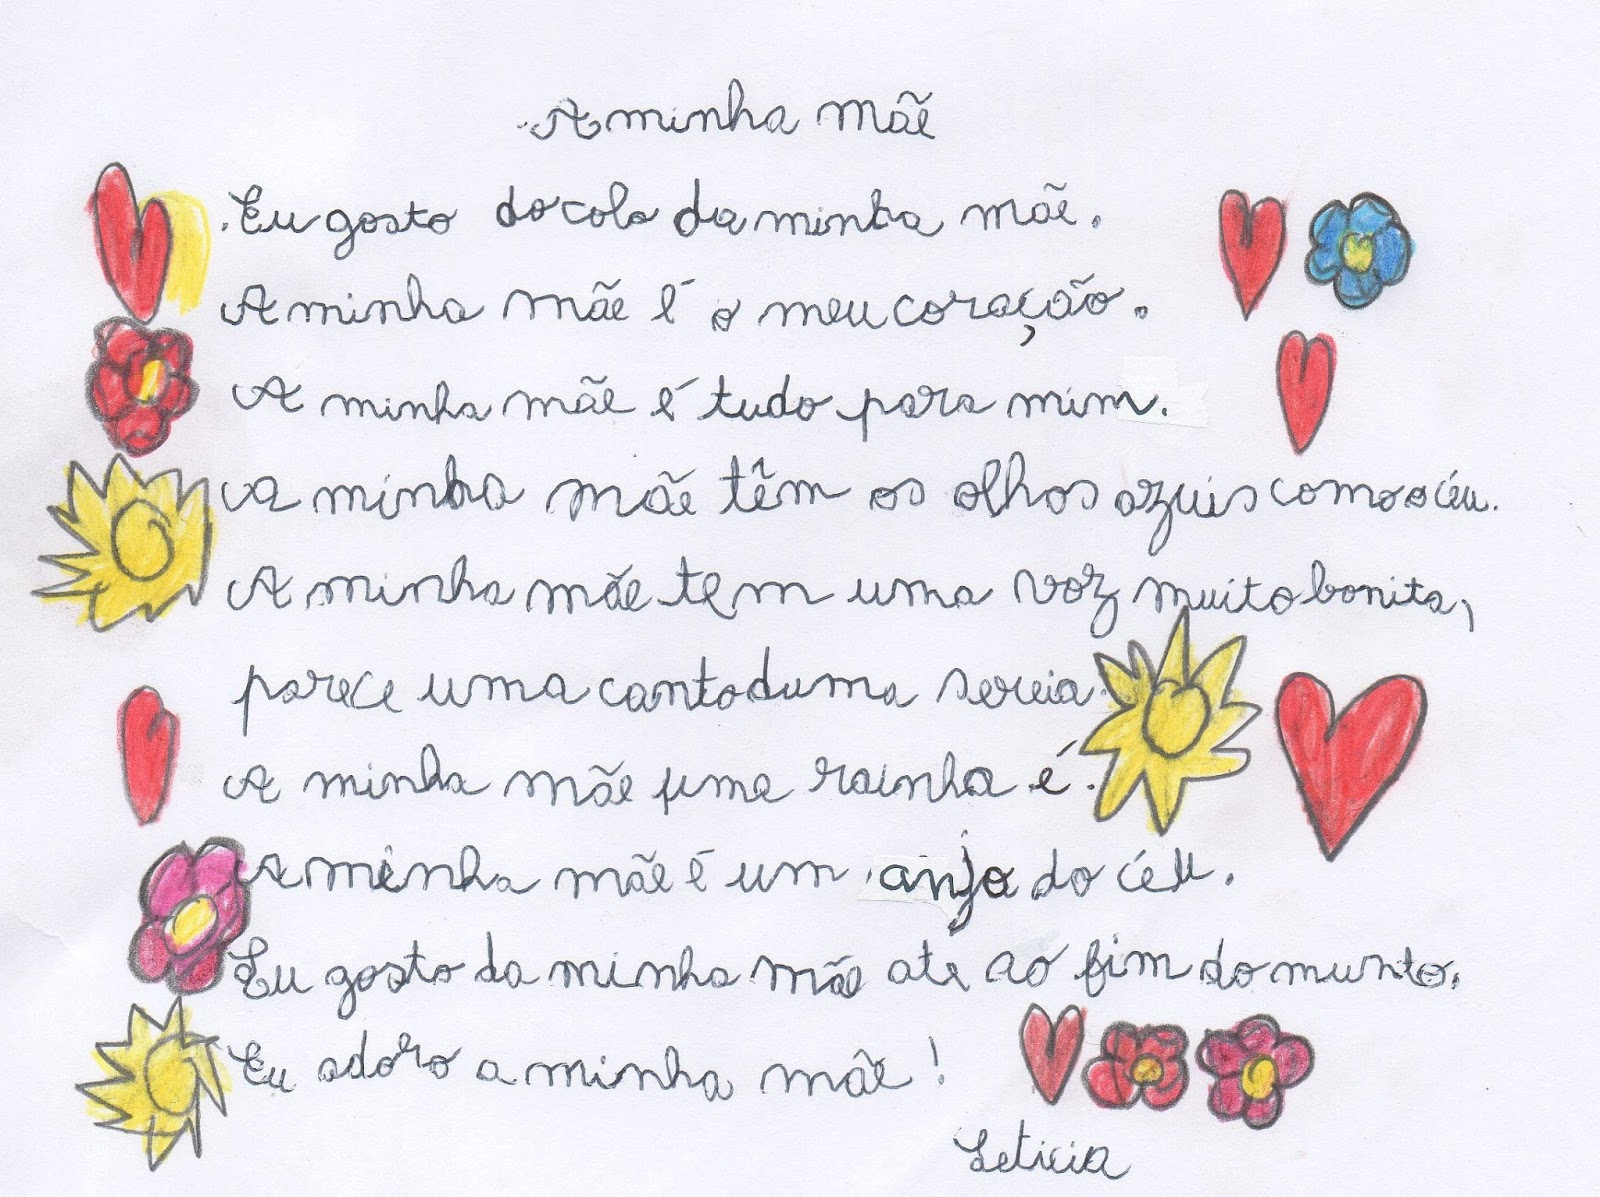 A minha mãe
Eu gosto do colo da minha mãe.
A minha mãe é o meu coração.
A minha mãe é tudo para mim.
A minha mãe têm os olhos azuis como o céu.
A minha mãe tem uma voz muito bonita,
parece uma canto duma sereia.
A minha mãe uma rainha é.
A minha mãe é um anjo do céu.
Eu gosto da minha mãe ate ao fim do munto.
Eu adoro a minha mãe!
Leticia